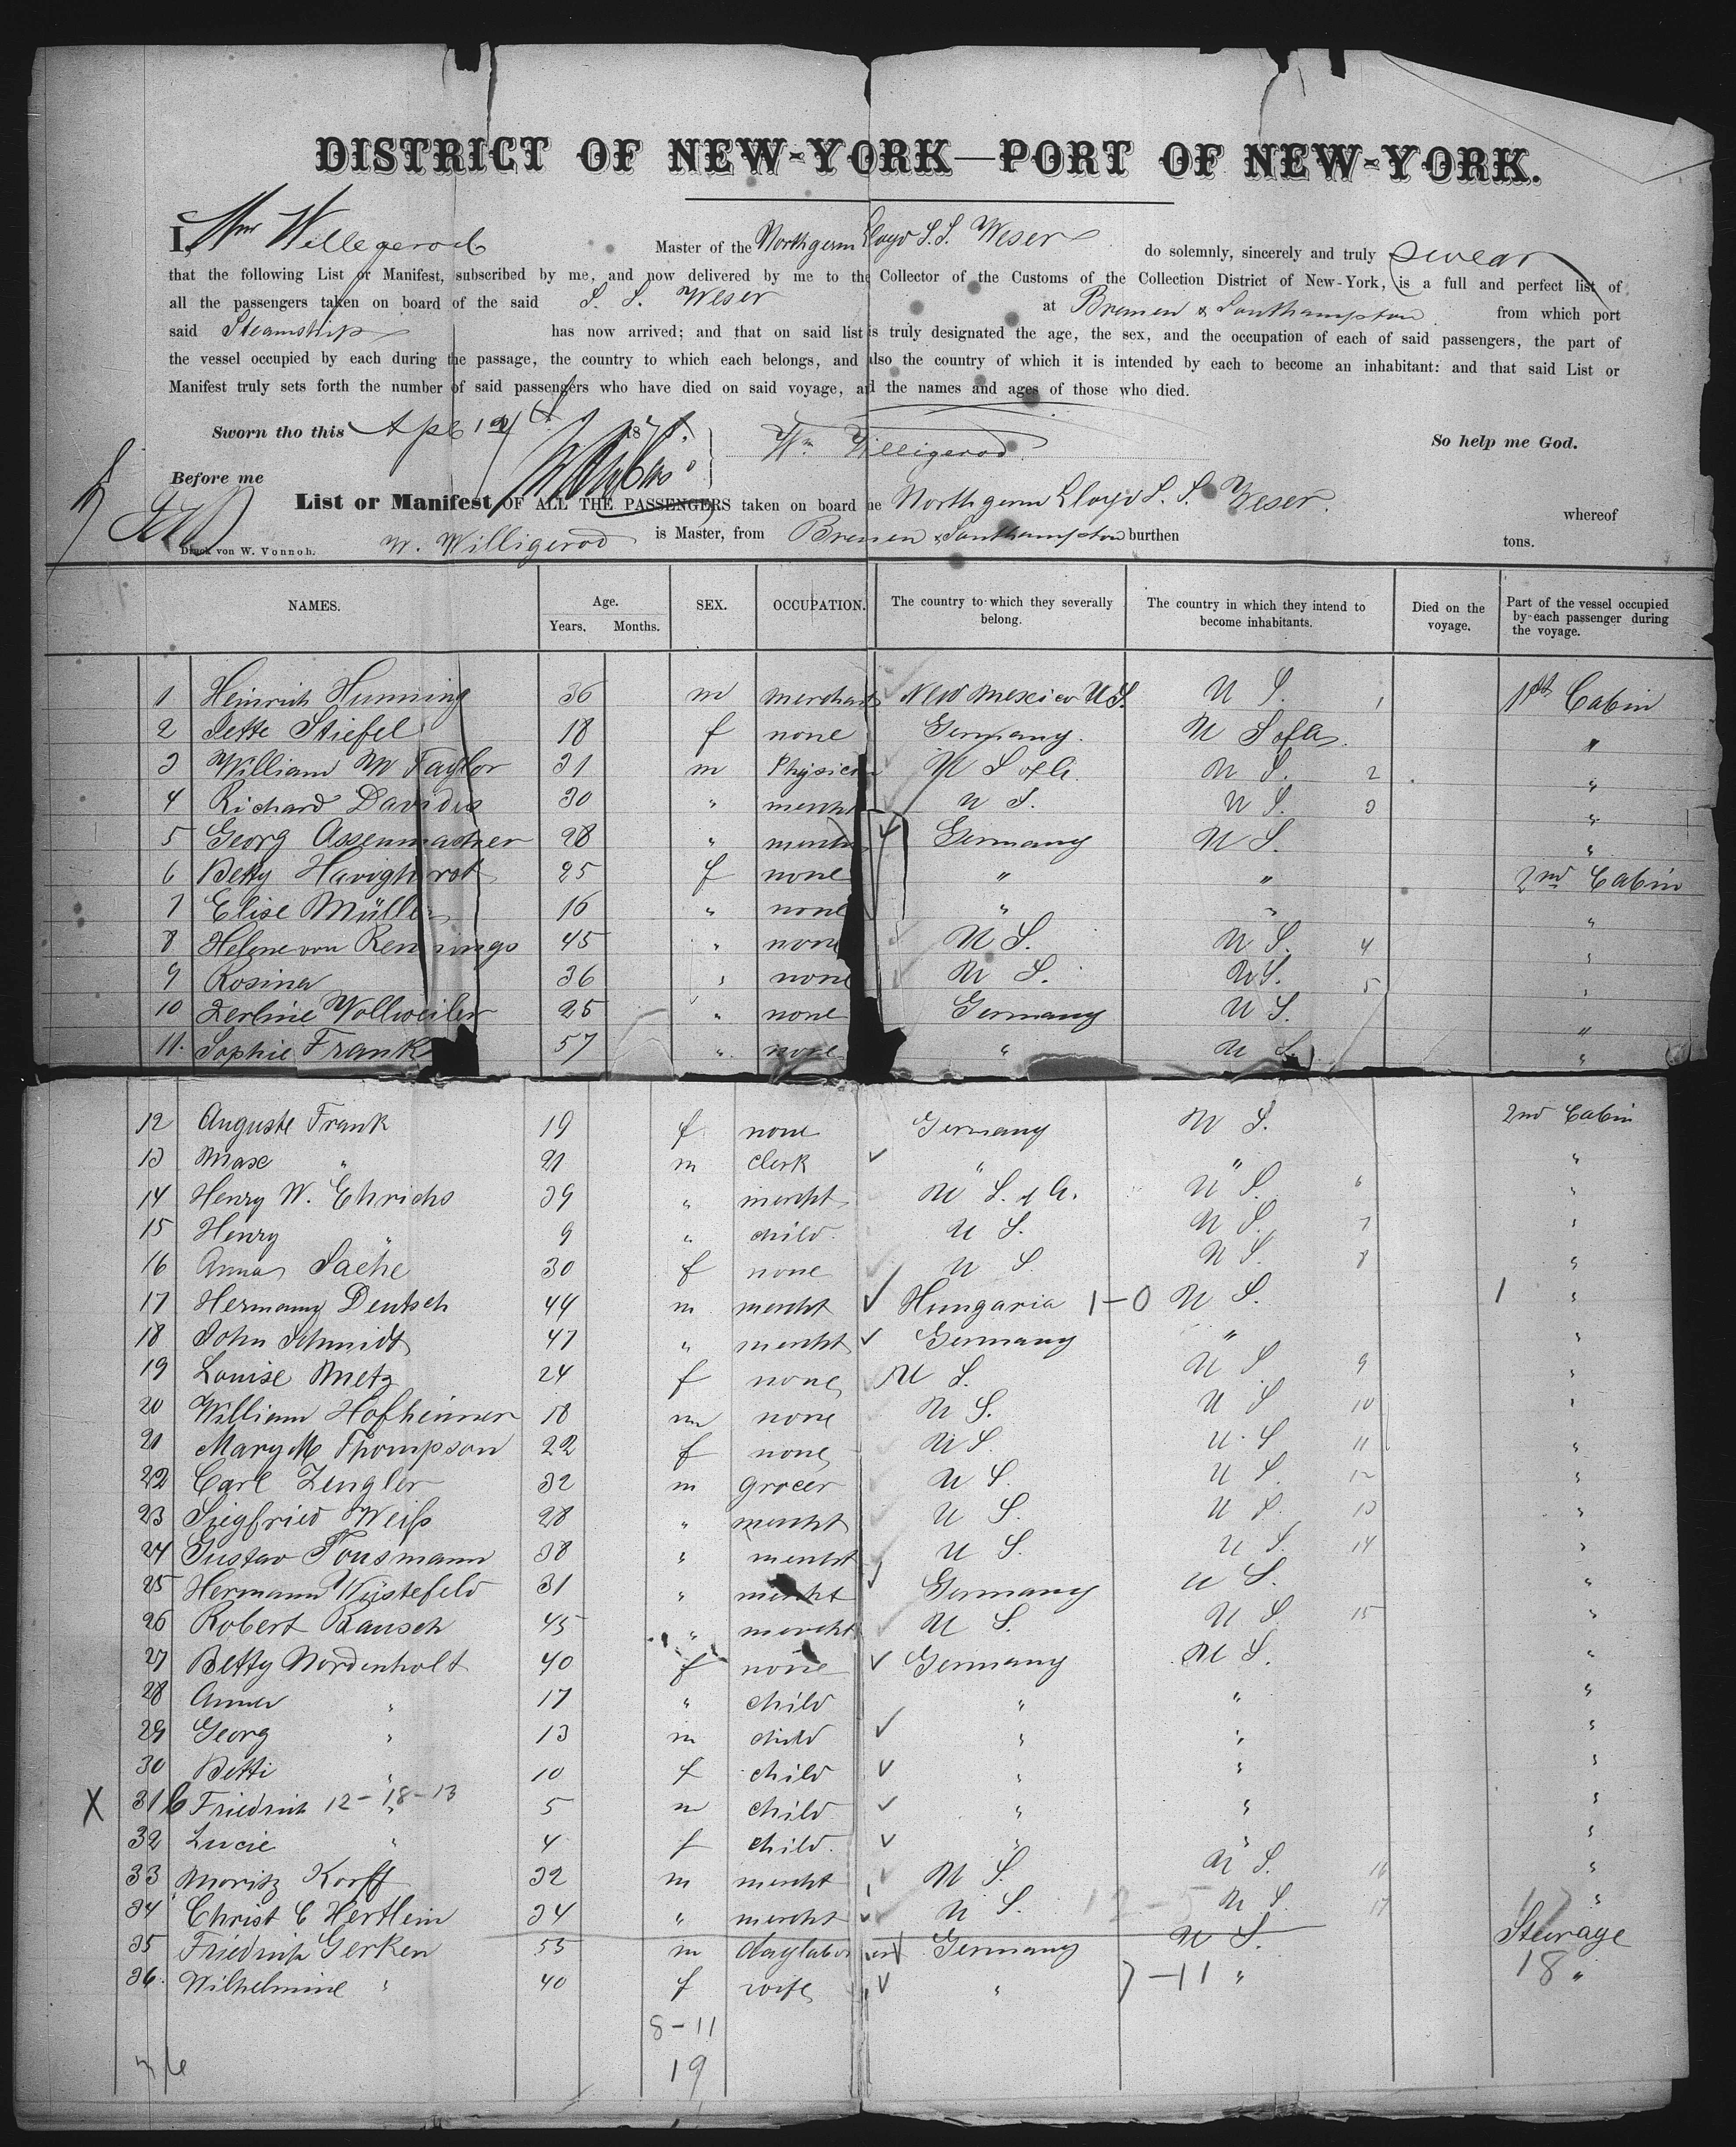 DISTRICT OF NEW-YORK—PORT OF NEW-YORK.
I, Wm Willegerod Master of the Northgerm Lloyd S.S. Weser do solemnly, sincerely and truly swear
that the following List or Manifest, subscribed by me, and now delivered by me to the Collector of the Customs of the Collection District of New-York, is a full and perfect list of
all the passengers taken on board of the said S. S. Weser at Bremen & Southampton from which port
said Steamship has now arrived; and that on said list is truly designated the age, the sex, and the occupation of each of said passengers, the part of
the vessel occupied by each during the passage, the country to which each belongs, and also the country of which it is intended by each to become an inhabitant: and that said List or
Manifest truly sets forth the number of said passengers who have died on said voyage, and the names and ages of those who died.
Sworn tho this 187 Wm Willigerod So help me God.
Before me
List or Manifest OF ALL THE PASSENGERS taken on board the Northgerm Lloyd S. S. Weser. whereof
Druck von W. Vonnoh. W. Willigerod is Master, from Bremen & Southampton burthen tons.
NAMES. Age. Years. Months. SEX. OCCUPATION. The country to which they severally belong. The country in which they intend to become inhabitants. Died on the voyage. Part of the vessel occupied by each passenger during the voyage.
1 Heinrich Hunning 36 m merchant New Mexico U.S. U S. 1 1st Cabin
2 Jette Stiefel 18 f none Germany. U S of A. "
3 William W Taylor 31 m Physician U S of A. U S. 2 "
4 Richard Davides 30 " mercht U S. U S. 3 "
5 Georg Assenmacher 28 " mercht Germany U S. "
6 Betty Havighorst 25 f none " " 2nd Cabin
7 Elise Müller 16 " none " " "
8 Helene von Rennings 45 " none U S. U S. 4 "
9 Rosina 36 " none U S. U S. 5 "
10 Zerline Wollweiler 25 " none Germany U S. "
11. Sophie Frank 57 " none " U S. "
12 Auguste Frank 19 f none Germany U S. 2nd Cabin
13 Max " 21 m clerk " " "
14 Henry W. Ehrichs 39 " mercht U S. of A. U S. 6 "
15 Henry " 9 " child. U S. U S. 7 "
16 Anna Sache 30 f none U S U S. 8 "
17 Hermann Deutsch 44 m mercht Hungaria 1-0 U S. 1 "
18 John Schmidt 47 " mercht Germany " "
19 Louise Metz 24 f none U S. U S. 9 "
20 William Hofheimer 18 m none U S. U S 10 "
21 Mary M Thompson 22 f none U S. U. S 11 "
22 Carl Zengler 32 m grocer U S. U S. 12 "
23 Siegfried Weiß 28 " mercht U S. U S. 13 "
24 Gustav Fousmann 38 " mercht U S. U S. 14 "
25 Hermann Wüstefeld 31 " mercht Germany U S. "
26 Robert Rausch 45 " mercht U S. U S 15 "
27 Betty Nordenholt 40 f none Germany U S. "
28 Anna " 17 " child " " "
29 Georg " 13 m child " " "
30 Betti " 10 f child " " "
X 31 Friedrich " 12-18-13 5 m child " " "
32 Lucie " 4 f child. " " "
33 Moritz Korff 32 m mercht U S. U S. 16 "
34 Christ C Hertlein 34 " mercht U S. 12-5 U S. 17 "
35 Friedrich Gerken 55 m daglaborer Germany U S. Steerage
36. Wilhelmine " 40 f wife " 7-11 " 18 "
8-11
19